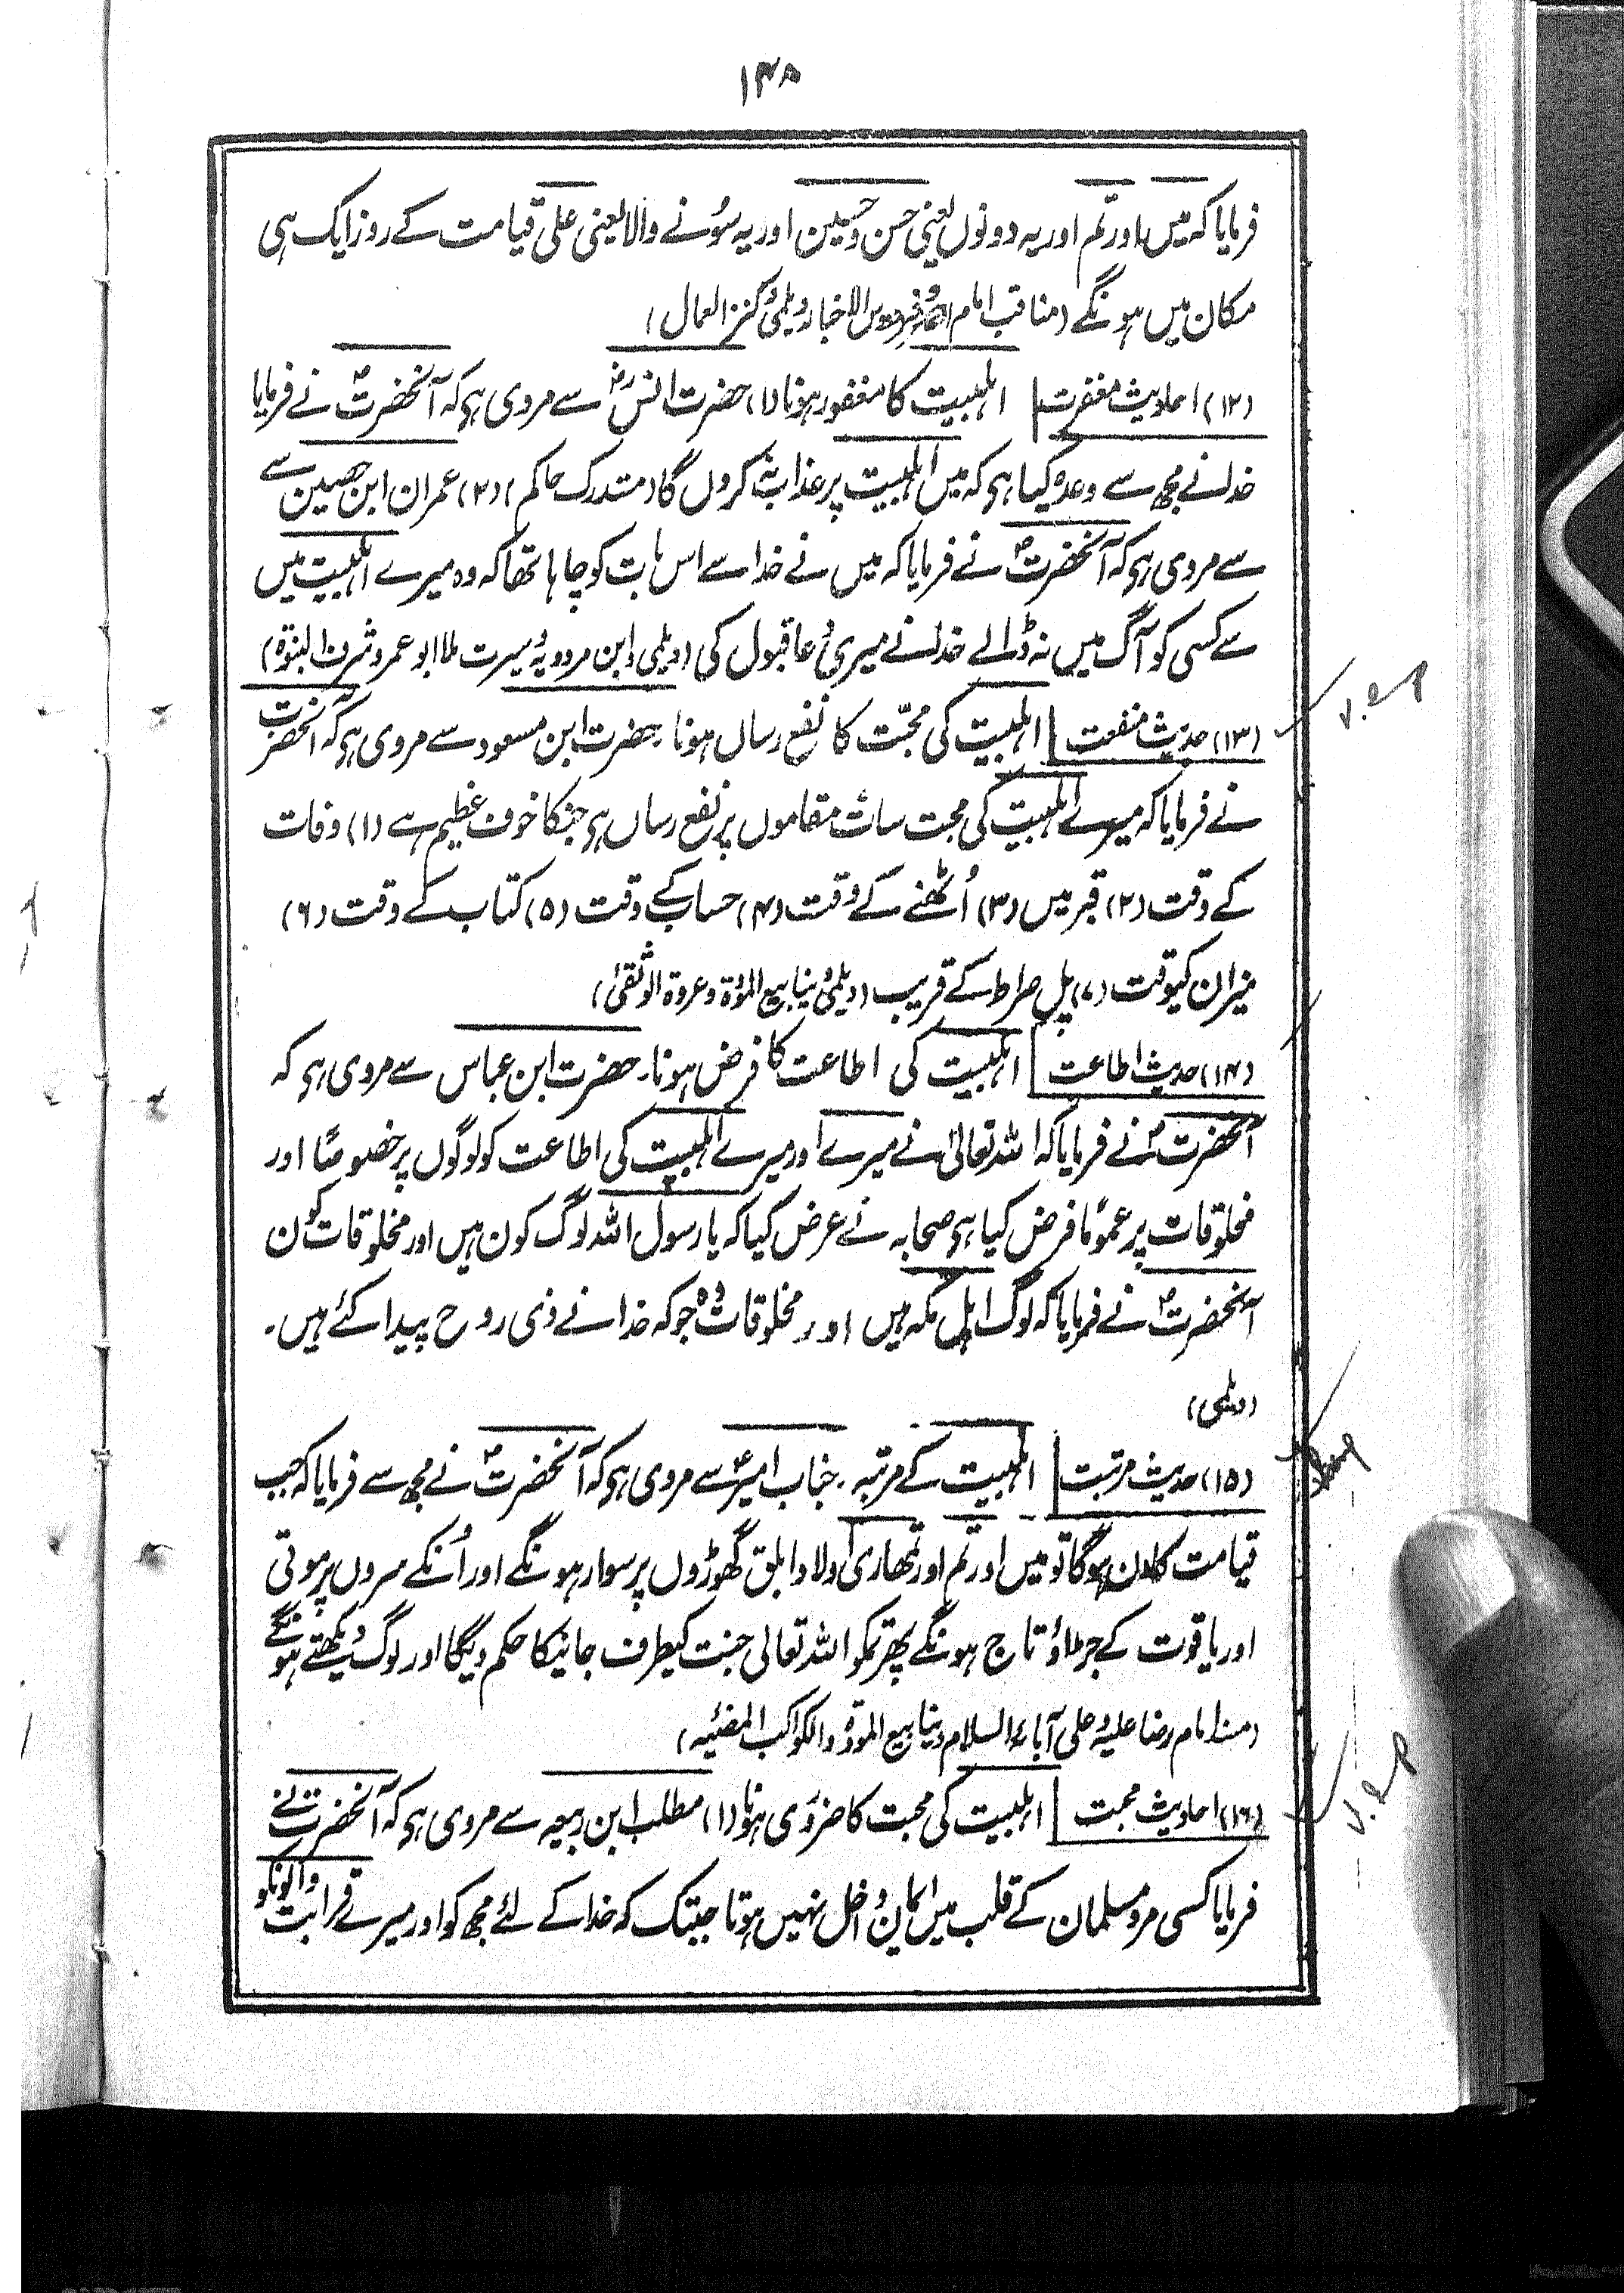 ۱۴۸
فرمایا کہ میں اور تم اور یہ دونوں یعنی حسن وحسین اور یہ سونے والا یعنی علی قیامت کے روز ایک ہی
مکان میں ہونگے (مناقب امام احمد و فردوس الاخبار دیلمی و کنز العمال)
(۱۲) احادیث مغفرت اہلبیت کا مغفور ہونا (۱) حضرت انس رض سے مروی ہی کہ آنحضرت ص نے فرمایا
خدانے مجھ سے وعدہ کیا ہی کہ میں اہلبیت پر عذاب نہ کروں گا (مستدرک حاکم) (۲) عمران ابن حصین سے
سے مروی ہی کہ آنحضرت ص نے فرمایا کہ میں نے خدا سے اس بات کو چاہا تھا کہ وہ میرے اہلبیت میں
سے کسی کو آگ میں نہ ڈالے خدانے میری دُعا قبول کی (دیلمی و ابن مردویہ و سیرت ملا ابو عمرو شرف النبوۃ)
(۱۳) حدیث منفعت اہلبیت کی محبّت کا نفع رساں ہونا۔ حضرت ابن مسعود سے مروی ہی کہ آنحضرت
نے فرمایا کہ میرے اہلبیت کی محبت سات مقاموں پر نفع رساں ہی جنکا خوف عظیم ہے (۱) وفات
کے وقت (۲) قبر میں (۳) اُٹھنے کے وقت (۴) حساب کے وقت (۵) کتاب کے وقت (۶)
میزان کیوقت (۷) پل صراط کے قریب (دیلمی و ینابیع المودۃ و عروۃ الوثقیٰ)
(۱۴) حدیث اطاعت اہلبیت کی اطاعت کا فرض ہونا۔ حضرت ابن عباس سے مروی ہی کہ
آنحضرت ص نے فرمایا کہ اللہ تعالیٰ نے میرے اور میرے اہلبیت کی اطاعت کو لوگوں پر خصوصًا اور
مخلوقات پر عمومًا فرض کیا ہی صحابہ نے عرض کیا کہ یا رسول اللہ لوگ کون ہیں اور مخلوقات کون
آنحضرت ص نے فرمایا کہ لوگ اہل مکہ ہیں اور مخلوقات وہ جو کہ خدا نے ذی روح پیدا کئے ہیں۔
(دیلمی)
(۱۵) حدیث مرتبت اہلبیت کے مرتبہ۔ جناب امیر ع سے مروی ہی کہ آنحضرت ص نے مجھ سے فرمایا کہ جب
قیامت کا دن ہوگا تو میں اور تم اور تمھاری اولاد ابلق گھوڑوں پر سوار ہونگے اور اُنکے سروں پر موتی
اور یاقوت کے جڑاؤ تاج ہونگے پھر تمکو اللہ تعالی جنت کیطرف جانیکا حکم دیگا اور لوگ دیکھتے ہونگے
(مسند امام رضا علیہ و علی آباۂ السلام و ینابیع المودۃ و الکواکب المضیئہ)
(۱۶) احادیث محبت اہلبیت کی محبت کا ضروری ہونا (۱) مطلب ابن ربیعہ سے مروی ہی کہ آنحضرت نے
فرمایا کسی مرد مسلمان کے قلب میں ایمان داخل نہیں ہوتا جبتک کہ خدا کے لئے مجھ کو اور میرے قرابت والونکو